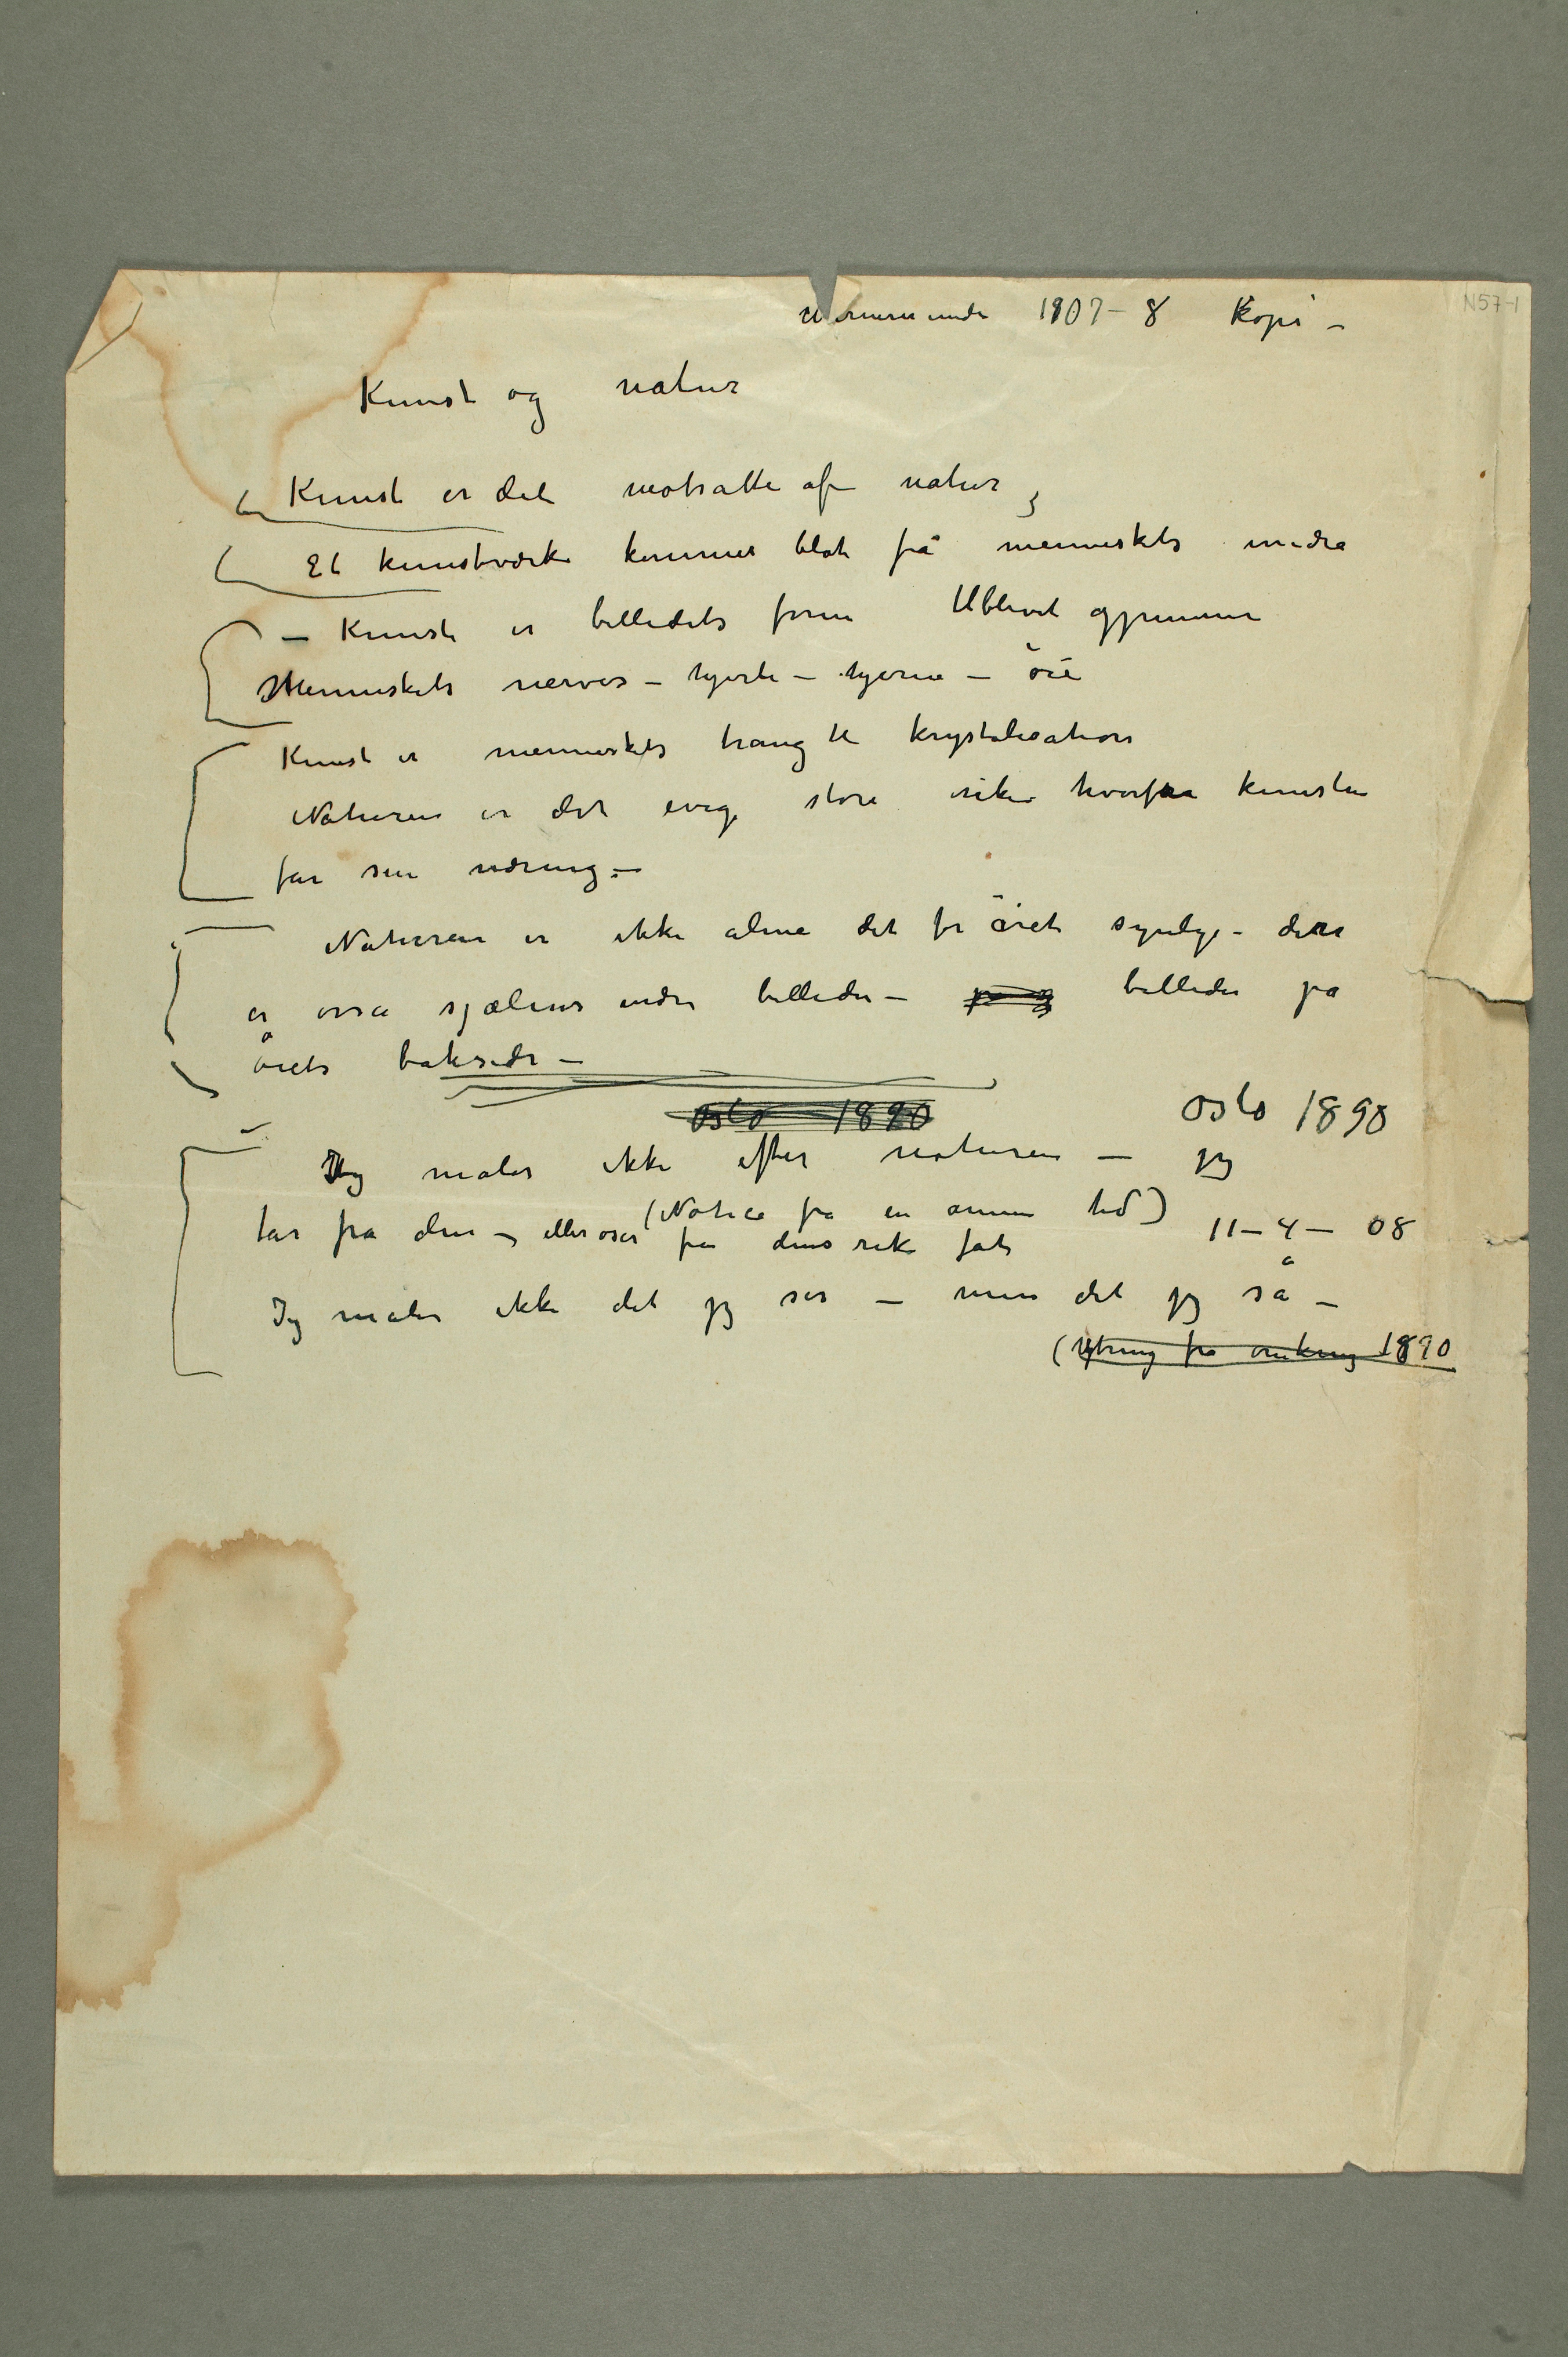 Warnemünde 1907–8 Kopi –
N57-1
Kunst og natur
Kunst er det motsatte af natur
Et kunstværk kommer blot fra menneskets indre
– Kunst er billedets form tilblivet gjennem
Menneskets nerver – hjerte – hjerne – öie
Kunst er menneskets trang til krystalisation
Naturen er det evige store rike hvorfra kunsten
får sin næring –
Naturen er ikke alene det for öiet synlige – den
er også sjælens indre billeder – billeder på
öiets bakside –
Oslo 1890 Oslo 1898
Jeg maler ikke efter naturen – jeg
(Notice fra en annen tid) 11–4–08
tar fra den – eller öser fra dens rike fat
Jeg maler ikke det jeg ser – men det jeg så –
(Ytring fra omkring 1890